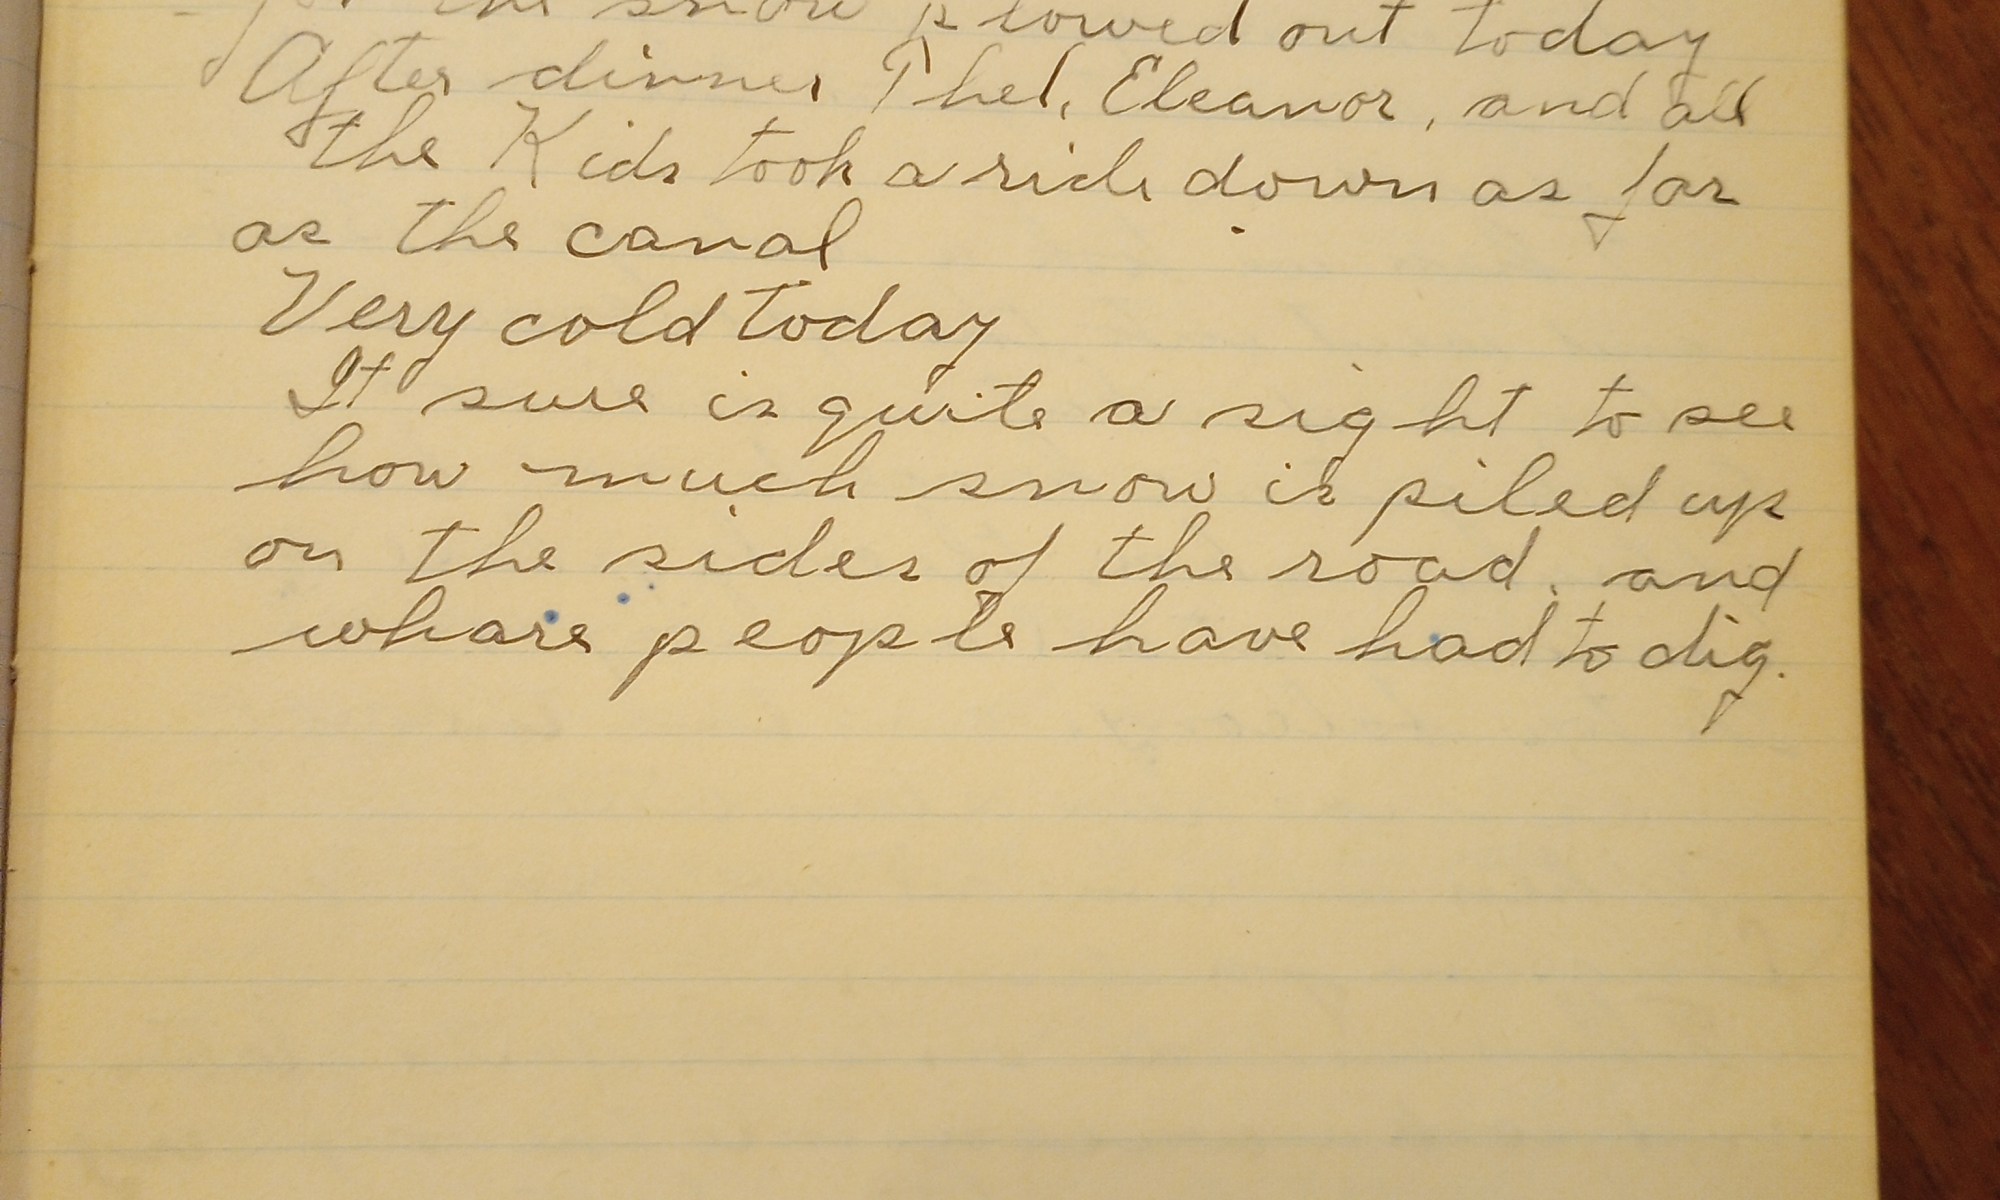 the snow plowed out today
After dinner Thel, Eleanor, and all
the Kids took a ride down as far
as the canal
Very cold today
It sure is quite a sight to see
how much snow is piled up
on the sides of the road, and
whare people have had to dig.